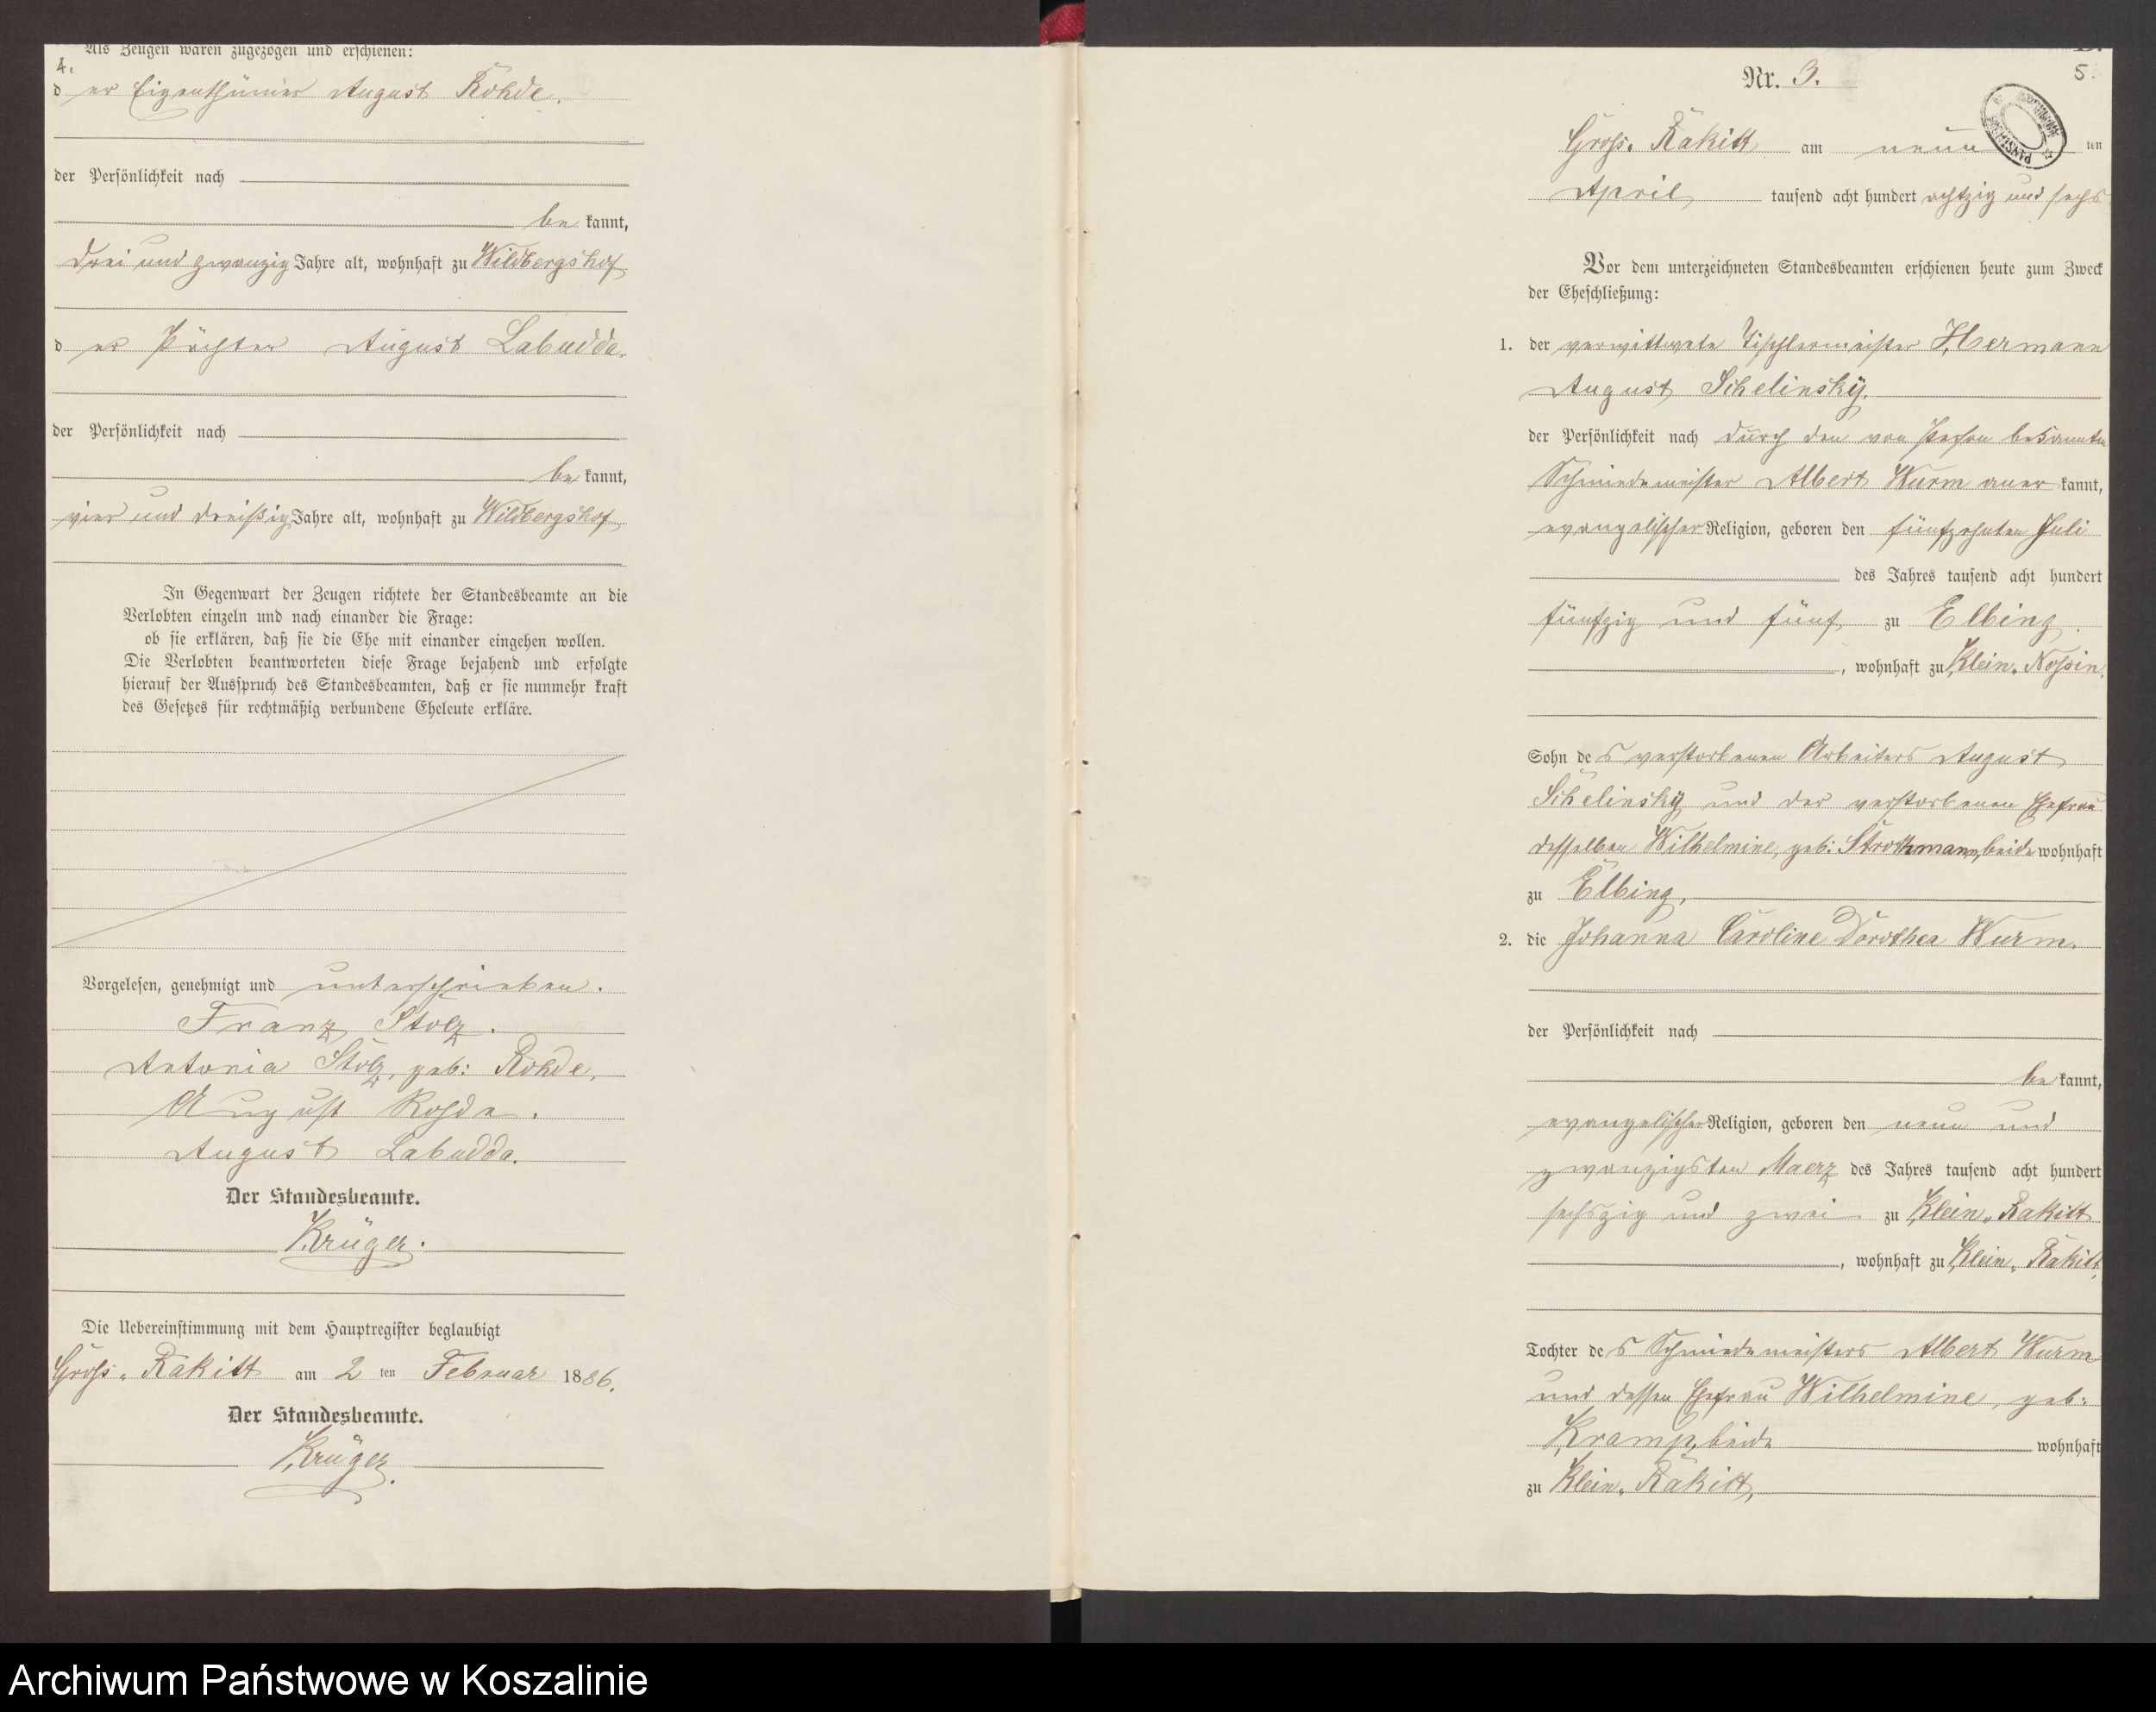 Als Zeugen waren zugezogen und erschienen:
4.
der Eigenthümer August Rohde.
der Persönlichkeit nach
be kannt,
drei und zwanzig Jahre alt, wohnhaft zu Wildbergshof
der Pächter August Labudda.
der Persönlichkeit nach
be kannt,
vier und dreißig Jahre alt, wohnhaft zu Wildbergshof
In Gegenwart der Zeugen richtete der Standesbeamte an die
Verlobten einzeln und nach einander die Frage:
ob sie erklären, daß sie die Ehe mit einander eingehen wollen.
Die Verlobten beantworteten diese Frage bejahend und erfolgte
hierauf der Ausspruch des Standesbeamten, daß er sie nunmehr kraft
des Gesetzes für rechtmäßig verbundene Eheleute erkläre.
Vorgelesen, genehmigt und unterschrieben.
Franz Stolz.
Antonia Stolz, geb: Rohde,
August Rohde.
August Labudda.
Der Standesbeamte.
Krüger.
Die Uebereinstimmung mit dem Hauptregister beglaubigt
Groß-Rakitt am 2 ten Februar 1886.
Der Standesbeamte.
Krüger.
5.
Nr. 3.
Groß-Rakitt am neun ten
April tausend acht hundert achtzig und sechs
Vor dem unterzeichneten Standesbeamten erschienen heute zum Zweck
der Eheschließung:
1. der verwittwete Tischlermeister Hermann
August Schelinsky.
der Persönlichkeit nach durch den von Person bekannten
Schmiedemeister Albert Wurm aner kannt,
evangelischer Religion, geboren den fünfzehnten Juli
des Jahres tausend acht hundert
fünfzig und fünf zu Elbing
, wohnhaft zu Klein-Nossin.
Sohn des verstorbenen Arbeiters August
Schelinsky und der verstorbenen Ehefrau
desselben Wilhelmine, geb: Strothmann, beide wohnhaft
zu Elbing,
2. die Johanna Caroline Dorothea Wurm.
der Persönlichkeit nach
be kannt,
evangelischer Religion, geboren den neun und
zwanzigsten Maerz des Jahres tausend acht hundert
sechszig und zwei zu Klein-Rakitt
, wohnhaft zu Klein-Rakitt,
Tochter des Schmiedemeisters Albert Wurm
und dessen Ehefrau Wilhelmine, geb:
Kramp, beide wohnhaft
zu Klein-Rakitt,
Archiwum Państwowe w Koszalinie